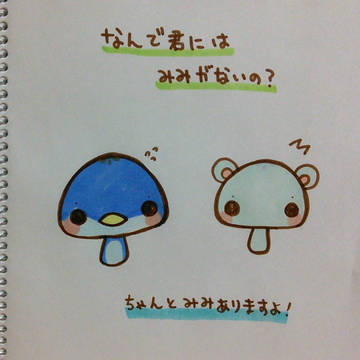 なんで君には
みみがないの?
ちゃんとみみありますよ!